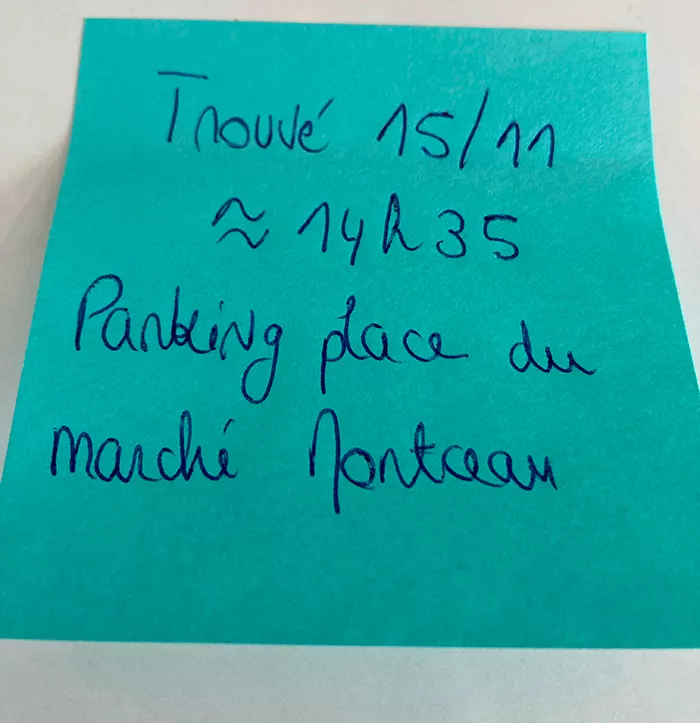 Trouvé 15/11
≈ 14h35
Parking place du
marché Montceau